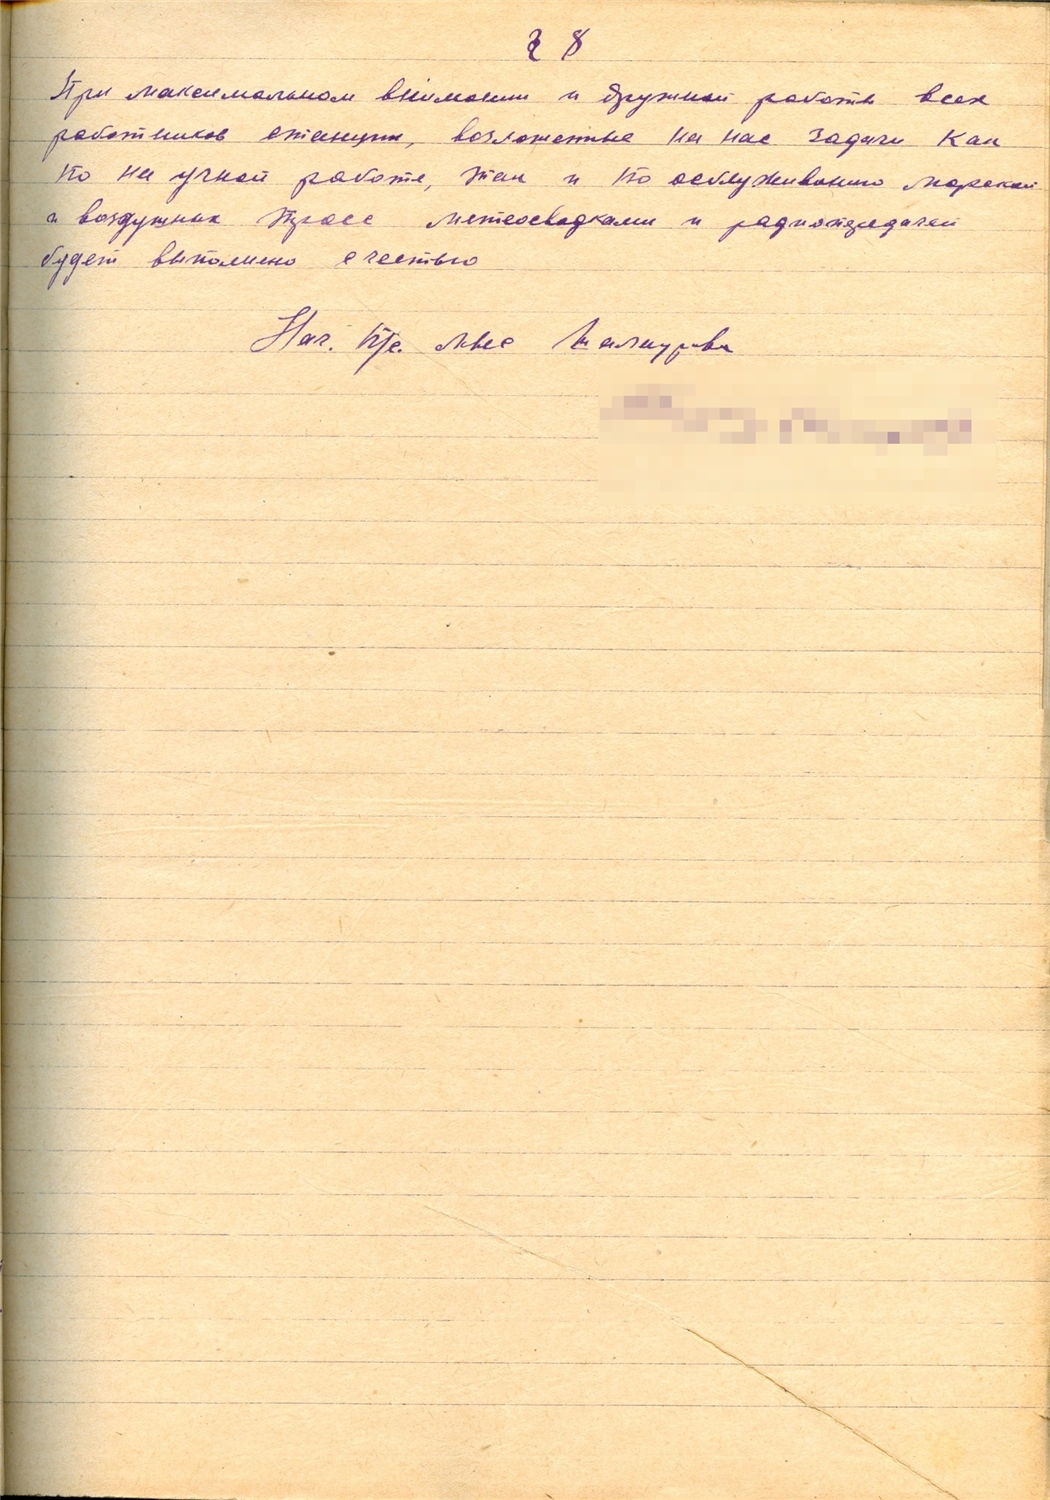 8
При максимальном внимании и дружной работы всех
работников станции, возложенные на нас задачи как
по научной работе, так и по обслуживанию морской
и воздушных трасс метеосводками и радиопередачей
будет выполнено с честью
Нач.